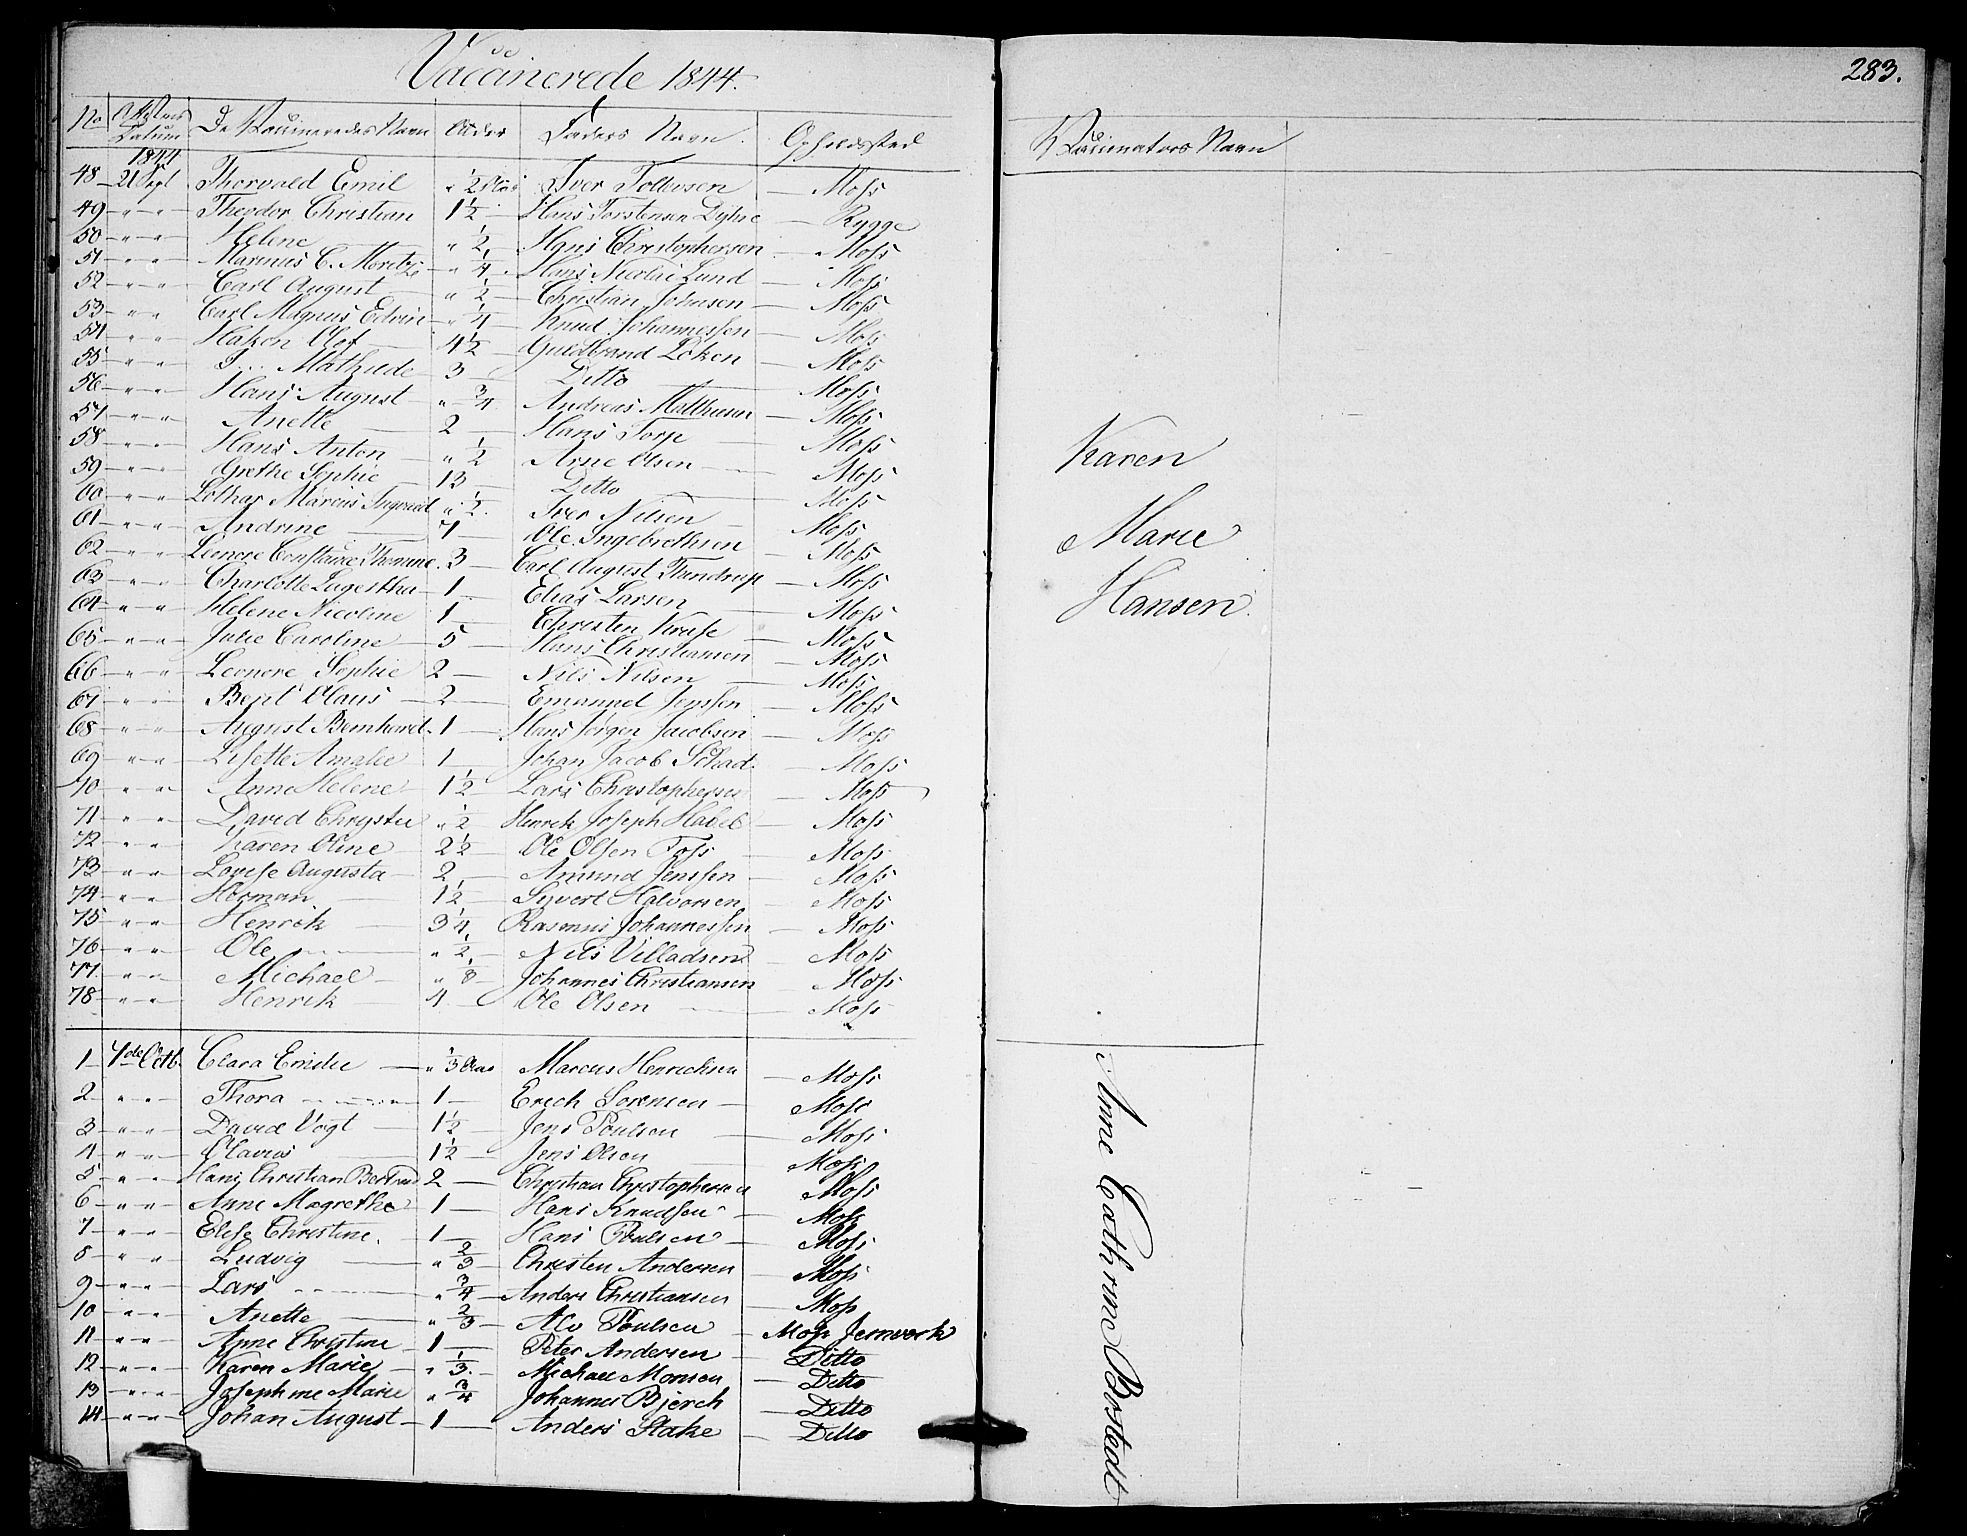 Vaccinerede 1844.
283.
No Attestens Datum De Vaccineredes Navn Alder Faders Navn. Opholdssted Vaccinators Navn
1844
48 21 Sept Thorvald Emil " 1/2 Iver Tollevsen — Moss
49 " " Theodor Christian 1 1/2 Hans Torstensen — Rygge
50 " " Helene " 1/2 Hans Christophersen — Moss
51 " " Marinus C. Moritz " 1/4 Hans Nicolai Lund — Moss
52 " " Carl August " 1/2 Christian Johnsen — Moss
53 " " Carl Magnus Edvin " 1/4 Knud Johannessen — Moss
54 " " Haken Olof 4 1/2 Guldbrand Løken — Moss
55 " " J... Mathilde 3 Ditto Moss
56 " " Hans August " 3/4 Andreas — Moss
57 " " Anette 2 Hans Torp — Moss
58 " " Hans Anton " 1/2 Arne Olsen — Moss
59 " " Grethe Sophie 13 Ditto Moss
60 " " Lothar Marcus " 1/2 Iver Nilsen — Moss
61 " " Andrine 7 Ole Ingebrethsen Moss
62 " " Leonore Constance Thomine 3 Carl August — Moss
63 " " Charlotte Lagertha 1 Elias Larsen — Moss
64 " " Helene Nicoline 1 Christen Kruse — Moss
65 " " Julie Caroline 5 Hans Christiansen — Moss
66 " " Leonore Sophie 2 Nils Nilsen — Moss
67 " " Bent Olaus 2 Emanuel Jenssen — Moss
68 " " August Bernhard 1 Hans Jørgen Jacobsen — Moss
69 " " Lisette Amalie 1 Johan Jacob Schad — Moss
70 " " Anne Helene 1 1/2 Lars Christophersen — Moss
71 " " David " 1/2 Henrik Joseph — Moss
72 " " Karen Oline 2 1/2 Ole Olsen Foss — Moss
73 " " Lovise Augusta 2 Amund Jenssen — Moss
74 " " Herman 1 1/2 Syvert Halvorsen — Moss
75 " " Henrik 3 1/4 Rasmus Johannessen — Moss
76 " " Ole " 1/2 Nils Villadsen — Moss
77 " " Michael " 1/8 Johannes Christiansen — Moss
78 " " Henrik 4 Ole Olsen — Moss
Karen
Marie
Hansen.
1 7de Octb. Clara Emilie " 1/3 Aar Marcus Henrichsen — Moss
2 " " Thora 1 Erich Sørensen — Moss
3 " " David Vogt 1 1/2 Jens Poulsen — Moss
4 " " Olavus 1 1/2 Jens Olsen — Moss
5 " " Hans Christian 2 Christian Christophersen Moss
6 " " Anne Magrethe 1 Hans Knudsen — Moss
7 " " Elise Christine. 1 Hans Poulsen — Moss
8 " " Ludvig " 2/3 Christen Andersen — Moss
9 " " Lars " 3/4 Anders Christiansen — Moss
10 " " Anette " 2/3 Alv Poulsen — Moss Jernverk
11 " " Anne Christine 1 Peter Andersen — Ditto
12 " " Karen Marie " 1/3 Michael Monsen — Ditto
13 " " Josephine Marie " 3/4 Johannes Bjerch — Ditto
14 " " Johan August 1 Anders Stake — Ditto
Anne Cathrine Bostedt